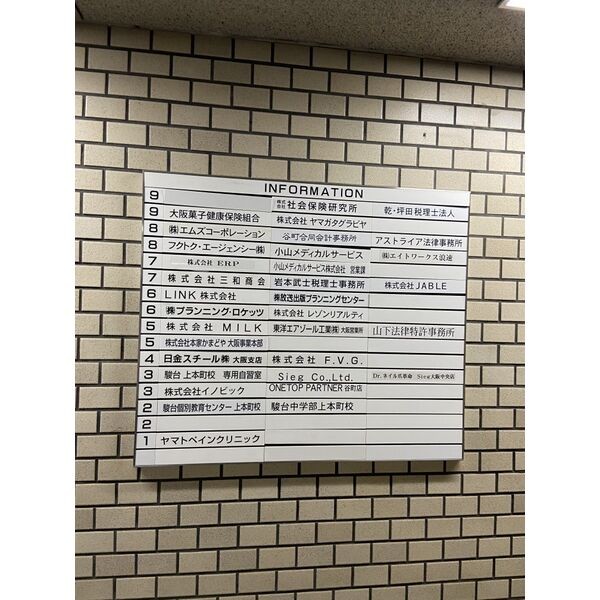 INFORMATION
9 株式会社 社会保険研究所 乾・坪田税理士法人
9 大阪菓子健康保険組合 株式会社 ヤマガタグラビヤ
8 ㈱エムズコーポレーション 谷町合同会計事務所 アストライア法律事務所
8 フクトク・エージェンシー㈱ 小山メディカルサービス ㈱エイトワークス浪速
7 株式会社 ERP 小山メディカルサービス株式会社 営業課
7 株式会社 三和商会 岩本武士税理士事務所 株式会社 JABLE
6 LINK 株式会社 ㈱放送出版プランニングセンター
6 ㈱プランニング・ロケッツ 株式会社 レゾンリアルティ
5 株式会社 MILK 東洋エアゾール工業㈱ 大阪営業所 山下法律特許事務所
5 株式会社本家かまどや 大阪事業本部
4 日金スチール㈱ 大阪支店 株式会社 F.V.G.
3 駿台 上本町校 専用自習室 Sieg Co.,Ltd. Dr.ネイル爪革命 Sieg大阪中央店
3 株式会社イノビック ONETOP PARTNER 谷町店
2 駿台個別教育センター 上本町校 駿台中学部上本町校
2
1 ヤマトペインクリニック